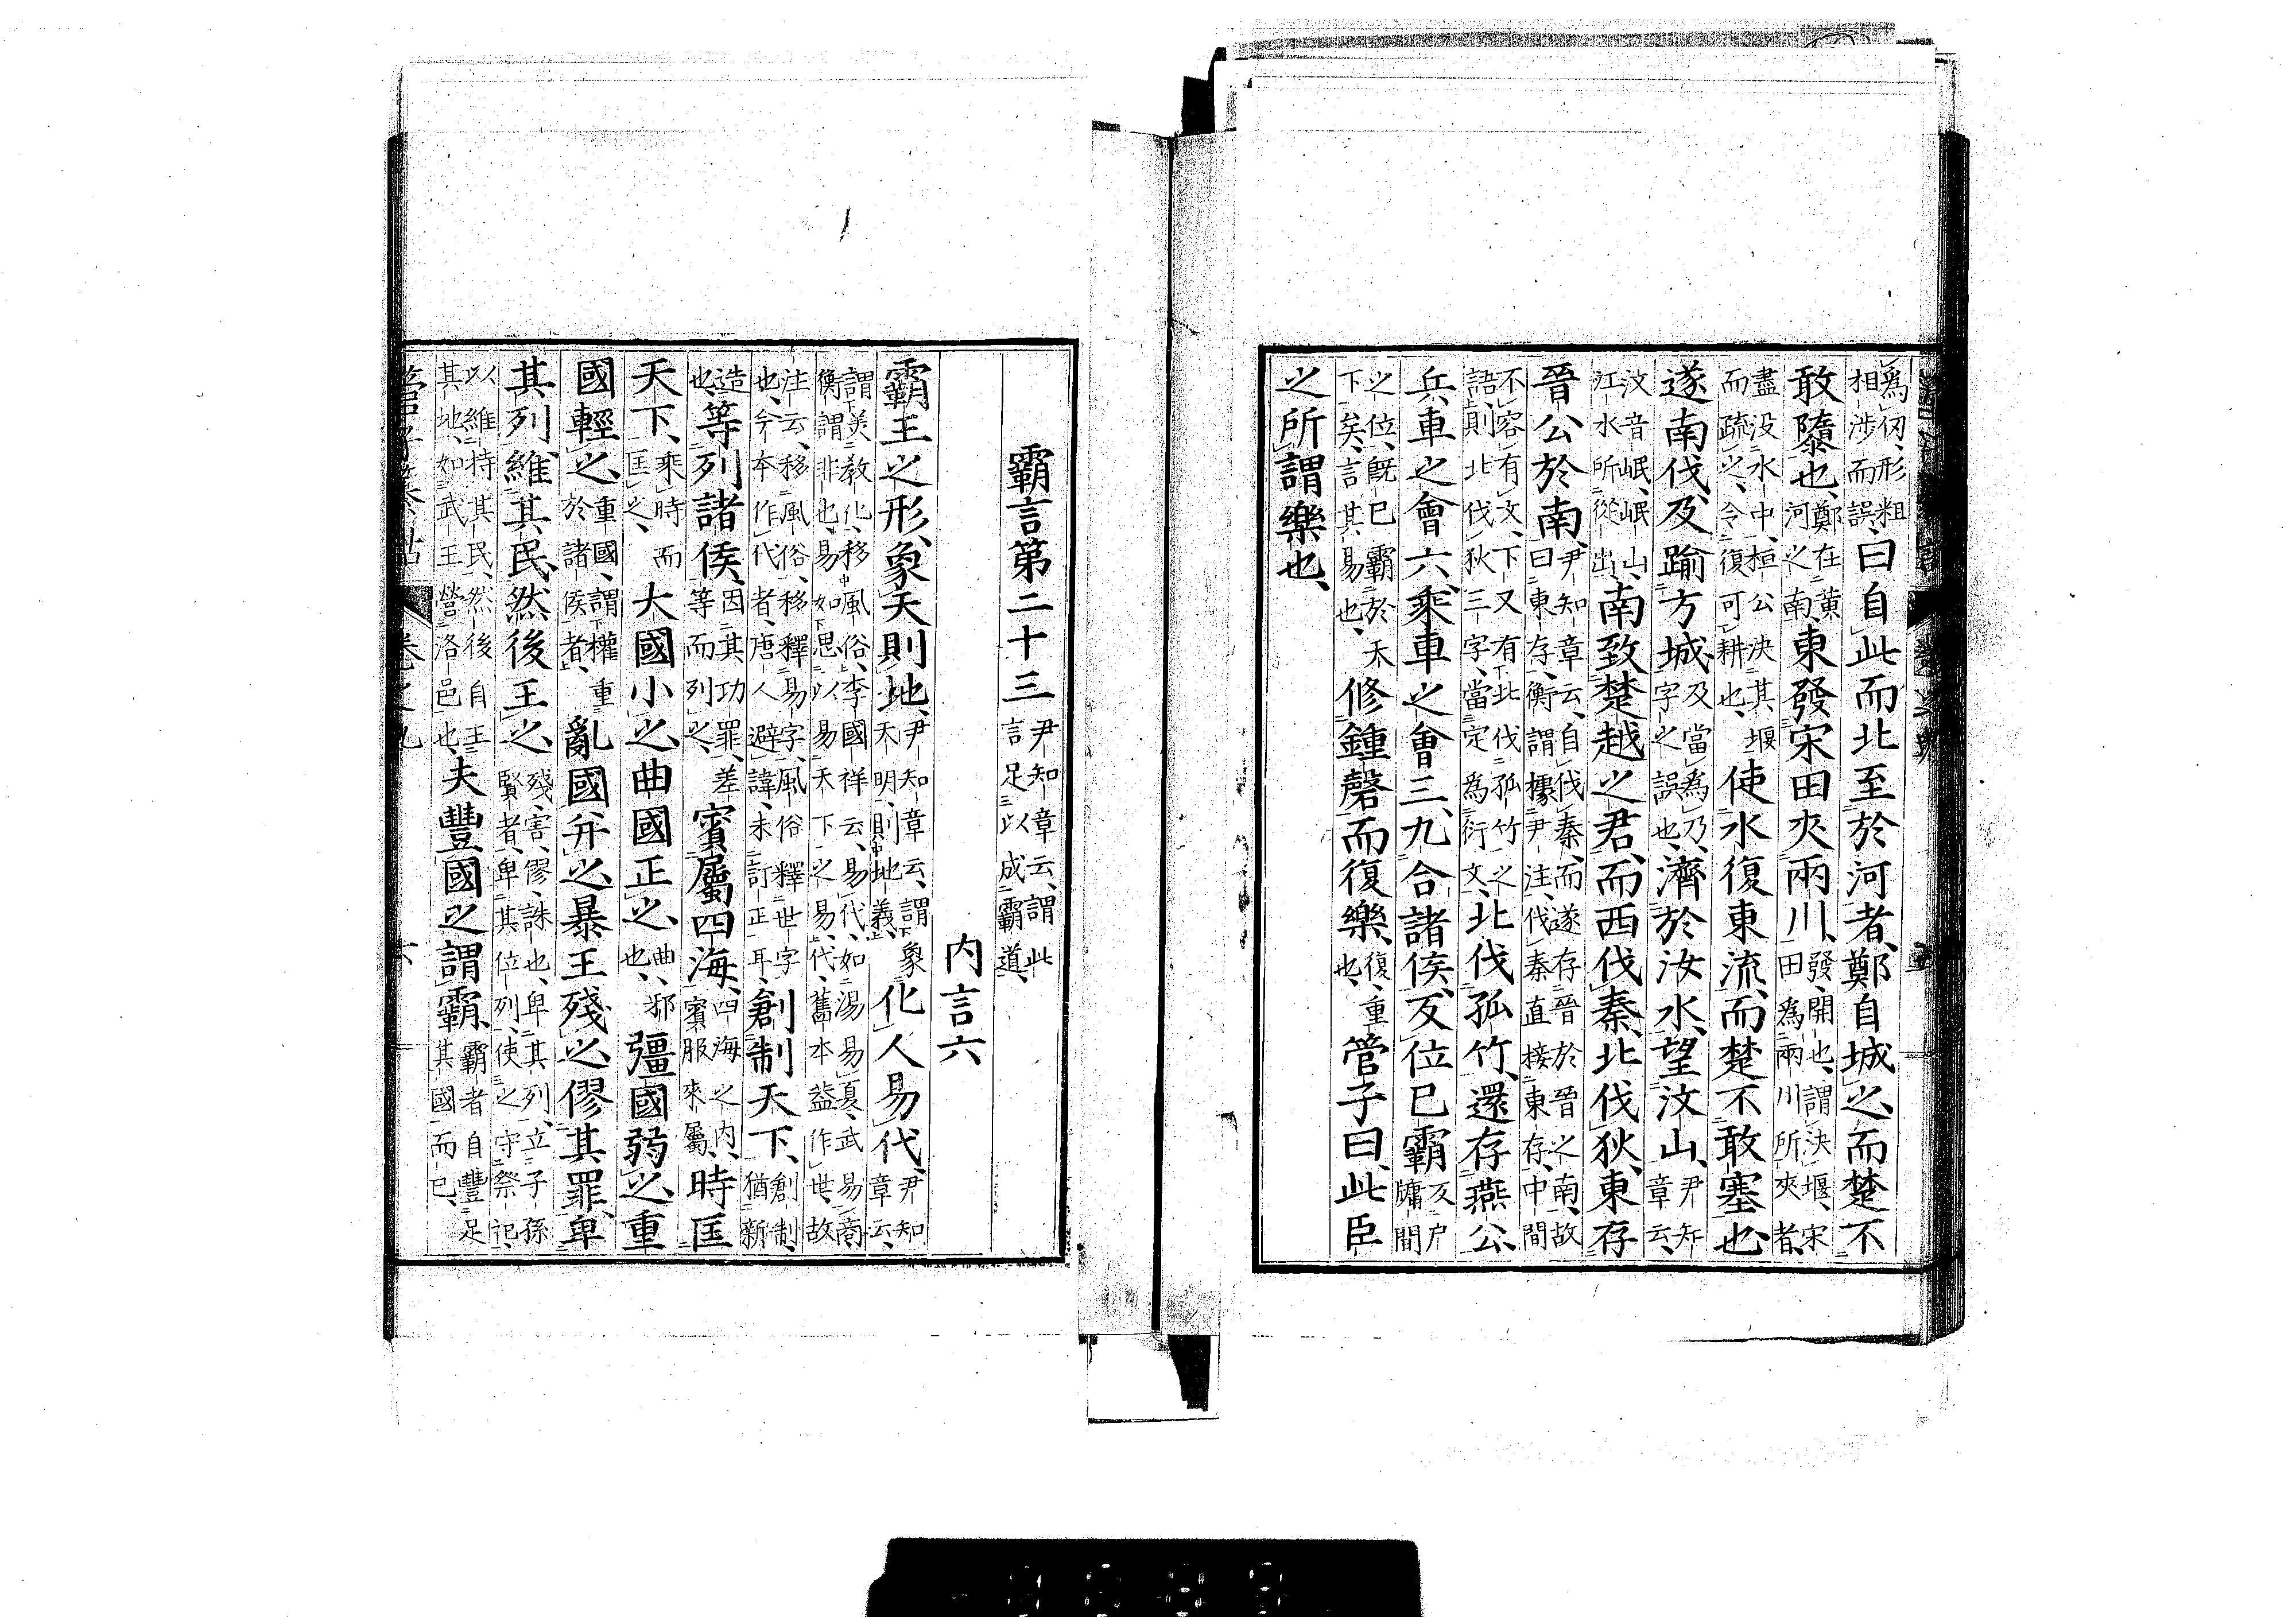 爲仞形粗相涉而誤、曰自此而北至於河者、鄭自城之、而楚不
敢隳也、鄭在黄河之南、東發宋田夾兩川、發、開也、謂決堰、宋田爲兩川所夾者、
盡没水中、桓公決其堰而疏之、令復可耕也、使水復東流、而楚不敢塞也、
遂南伐及踰方城、及當爲乃、字之誤也、濟於汝水、望汶山、尹知章云、
汶音岷、岷山、江水所從出、南致楚越之君、而西伐秦、北伐狄、東存
晉公於南、尹知章云、自伐秦、而遂存晉於晉之南、故曰東存、衡謂據尹注、伐秦直接東存、中間
不容有文、下又有北伐孤竹之語、則北伐狄三字、當定爲衍文、北伐孤竹、還存燕公、
兵車之會六、乘車之會三、九合諸侯、反位已霸反戶牗間
之位、既已霸於天下矣、言其易也、修鍾磬而復樂、復、重也、管子曰、此臣
之所謂樂也、
霸言第二十三尹知章云、謂此言足以成霸道、
内言六
霸王之形、象天則地、尹知章云、謂象天明、則地義、化人易代、尹知章云、
謂美教化、移風俗、李國祥云、易代、如湯易夏、武易商、衡謂非也、易如思以易天下之易、代、舊本蓋作世、故
注云、移風俗、移釋易字、風俗釋世字也、今本作代者、唐人避諱、未訂正耳、創制天下、創制、猶新
造也、等列諸侯、因其功罪、差等而列之、賓屬四海、四海之内、賓服來屬、時匡
天下、乘時而匡之、大國小之、曲國正之、曲、邪也、彊國弱之、重
國輕之、重國、謂權重於諸侯者、亂國并之、暴王殘之、僇其罪、卑
其列、維其民、然後王之、殘、害、僇、誅也、卑其列、立子孫賢者、卑其位列、使之守祭祀、
以維持其民、然後自王其地、如武王營洛邑也、夫豐國之謂霸、霸者自豐足其國而已、